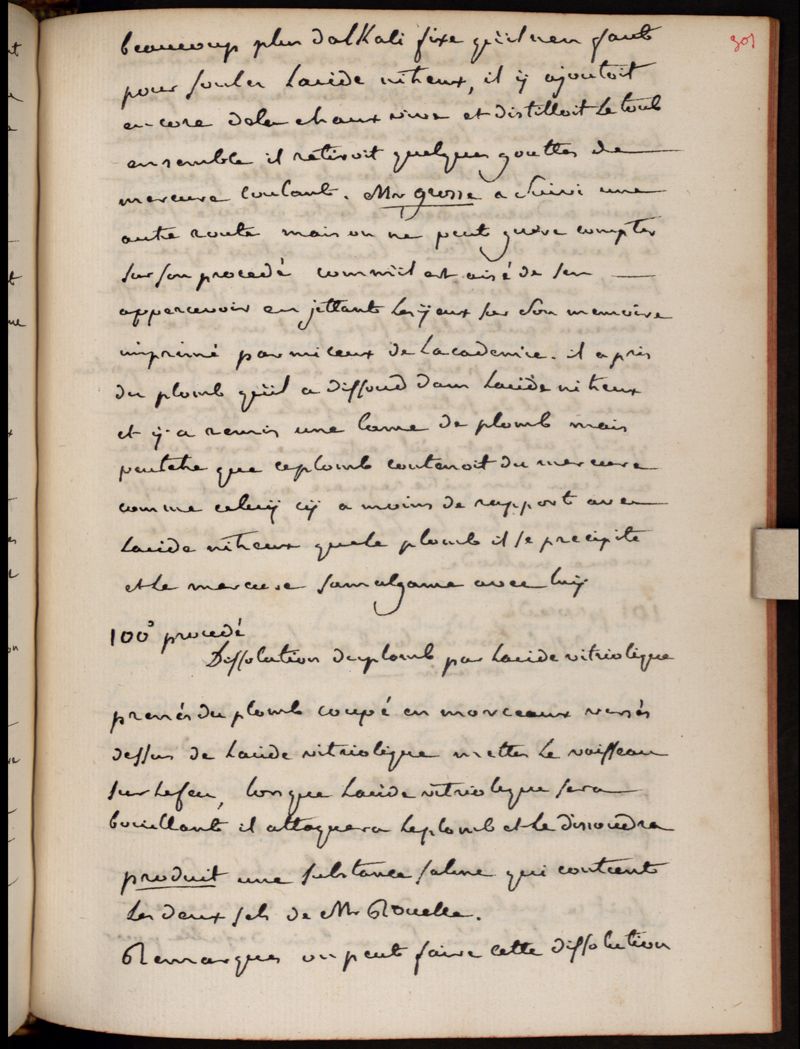 301
beaucoup plus dalKali fixe qu'il n'en faut
pour souler lacide nitreux, il ÿ ajoutoit
encore dela chaux vive et distilloit le tout
ensemble il retiroit quelques gouttes de
mercure coulant. Mr grosse a suivi une
autre route mais on ne peut guère compter
sur son procedé comme il est aisé de sen
appercevoir en jettant les ÿeux sur son memoire
imprimé parmi ceux de Lacademie. il a pris
du plomb qu'il a dissoud dans lacide nitreux
et ÿ a remis une lame de plomb mais
peutetre que ce plomb contenoit du mercure
comme celuÿ cÿ a moins de rapport avec
lacide nitreux que le plomb il se precipite
et le mercure samalgame avec luÿ
100e procedé
Dissolution du plomb par lacide vitriolique
prenés du plomb coupé en morceaux versés
dessus de lacide vitriolique mettes le vaisseau
sur le feu, lorsque lacide vitriolique sera
bouillant il attaquera le plomb et le dissoudra
produit une substance saline qui contient
les deux sels de Mr Rouelle.
Remarques on peut faire cette dissolution